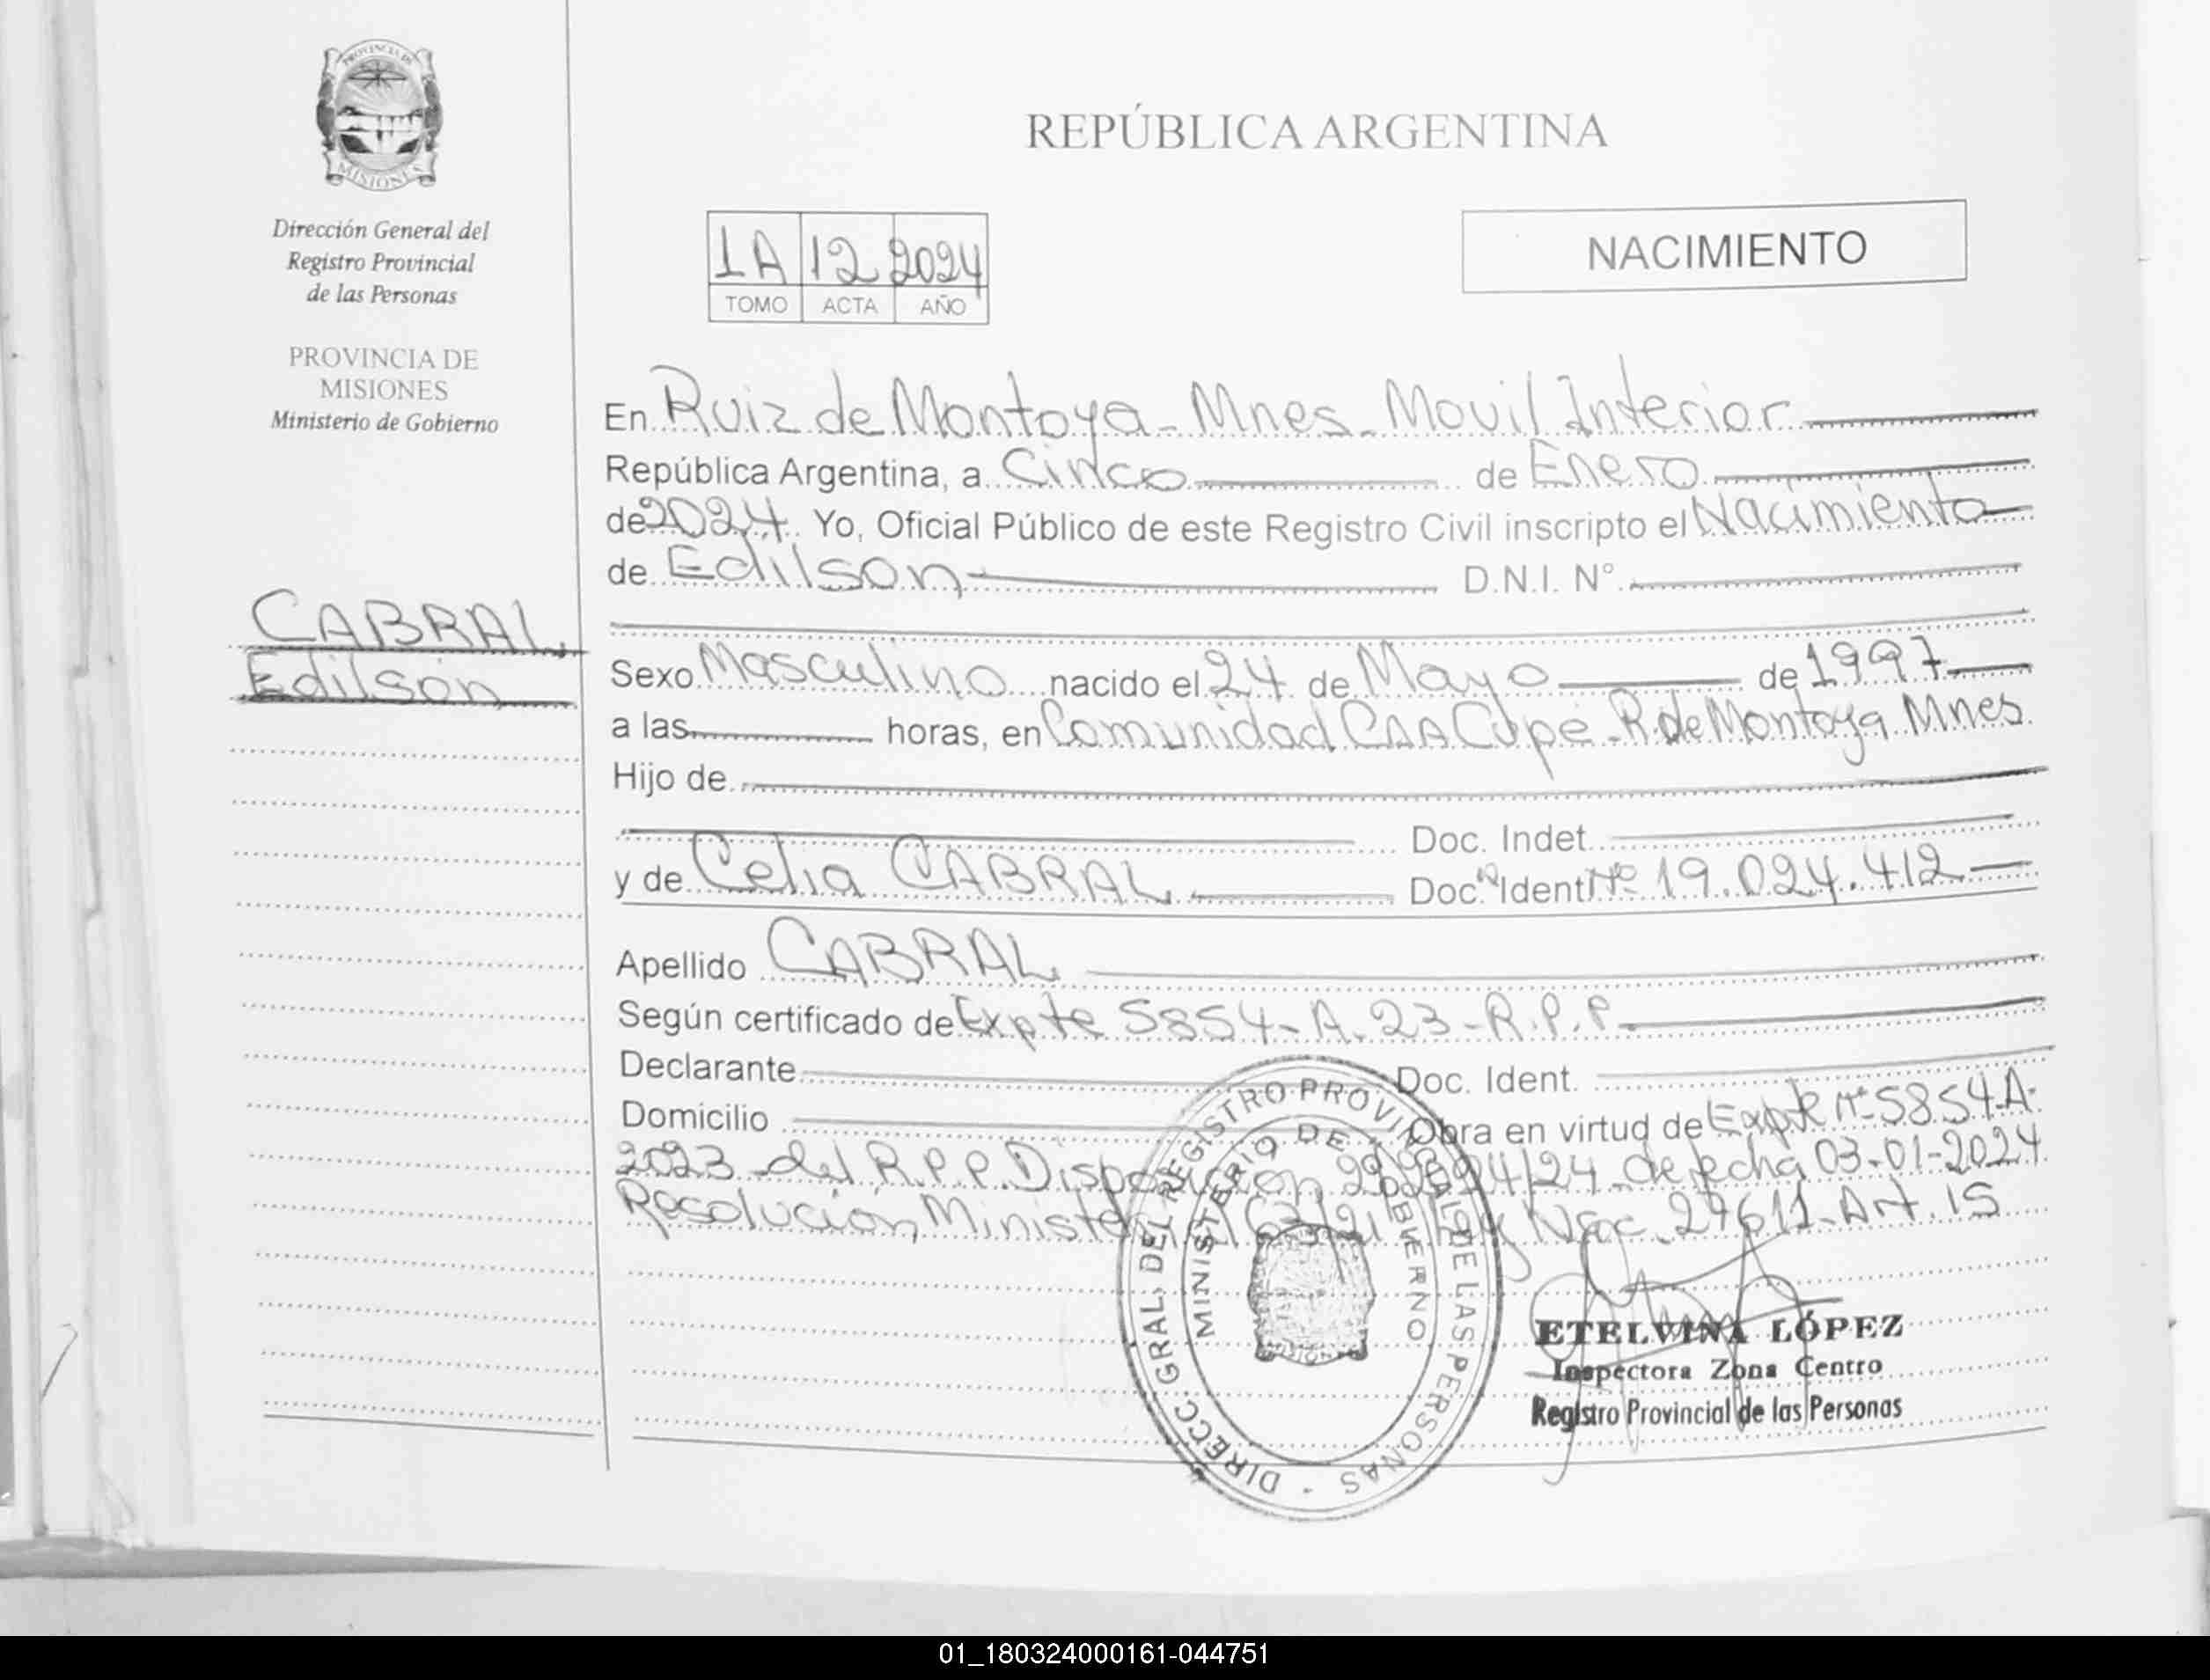 PROVINCIA DE
MISIONES
Dirección General del
Registro Provincial
de las Personas
PROVINCIA DE
MISIONES
Ministerio de Gobierno
CABRAL
Edilson
REPÚBLICA ARGENTINA
1A 12 2024
TOMO ACTA AÑO
NACIMIENTO
En Ruiz de Montoya - Mnes - Movil Interior
República Argentina, a Cinco de Enero
de 2024. Yo, Oficial Público de este Registro Civil inscripto el Nacimiento
de Edilson D.N.I. N°
Sexo Masculino nacido el 24 de Mayo de 1997
a las horas, en Comunidad CAA Cupe - R. de Montoya Mnes.
Hijo de
Doc. Indet.
y de Celia CABRAL Doc. Ident. Nº 19.024.412
Apellido CABRAL
Según certificado de Expte 5854-A-23-R.P.P.
Declarante Doc. Ident.
Domicilio Obra en virtud de Expte nº 5854-A-
2023 del R.P.P. Disposicion de fecha 03-01-2024
Resolución Ley Nac. Art. 15
DIRECC. GRAL. DEL REGISTRO PROVINCIAL DE LAS PERSONAS -
MINISTERIO DE GOBIERNO
MISIONES
ETELVINA LÓPEZ
Inspectora Zona Centro
Registro Provincial de las Personas
01_180324000161-044751